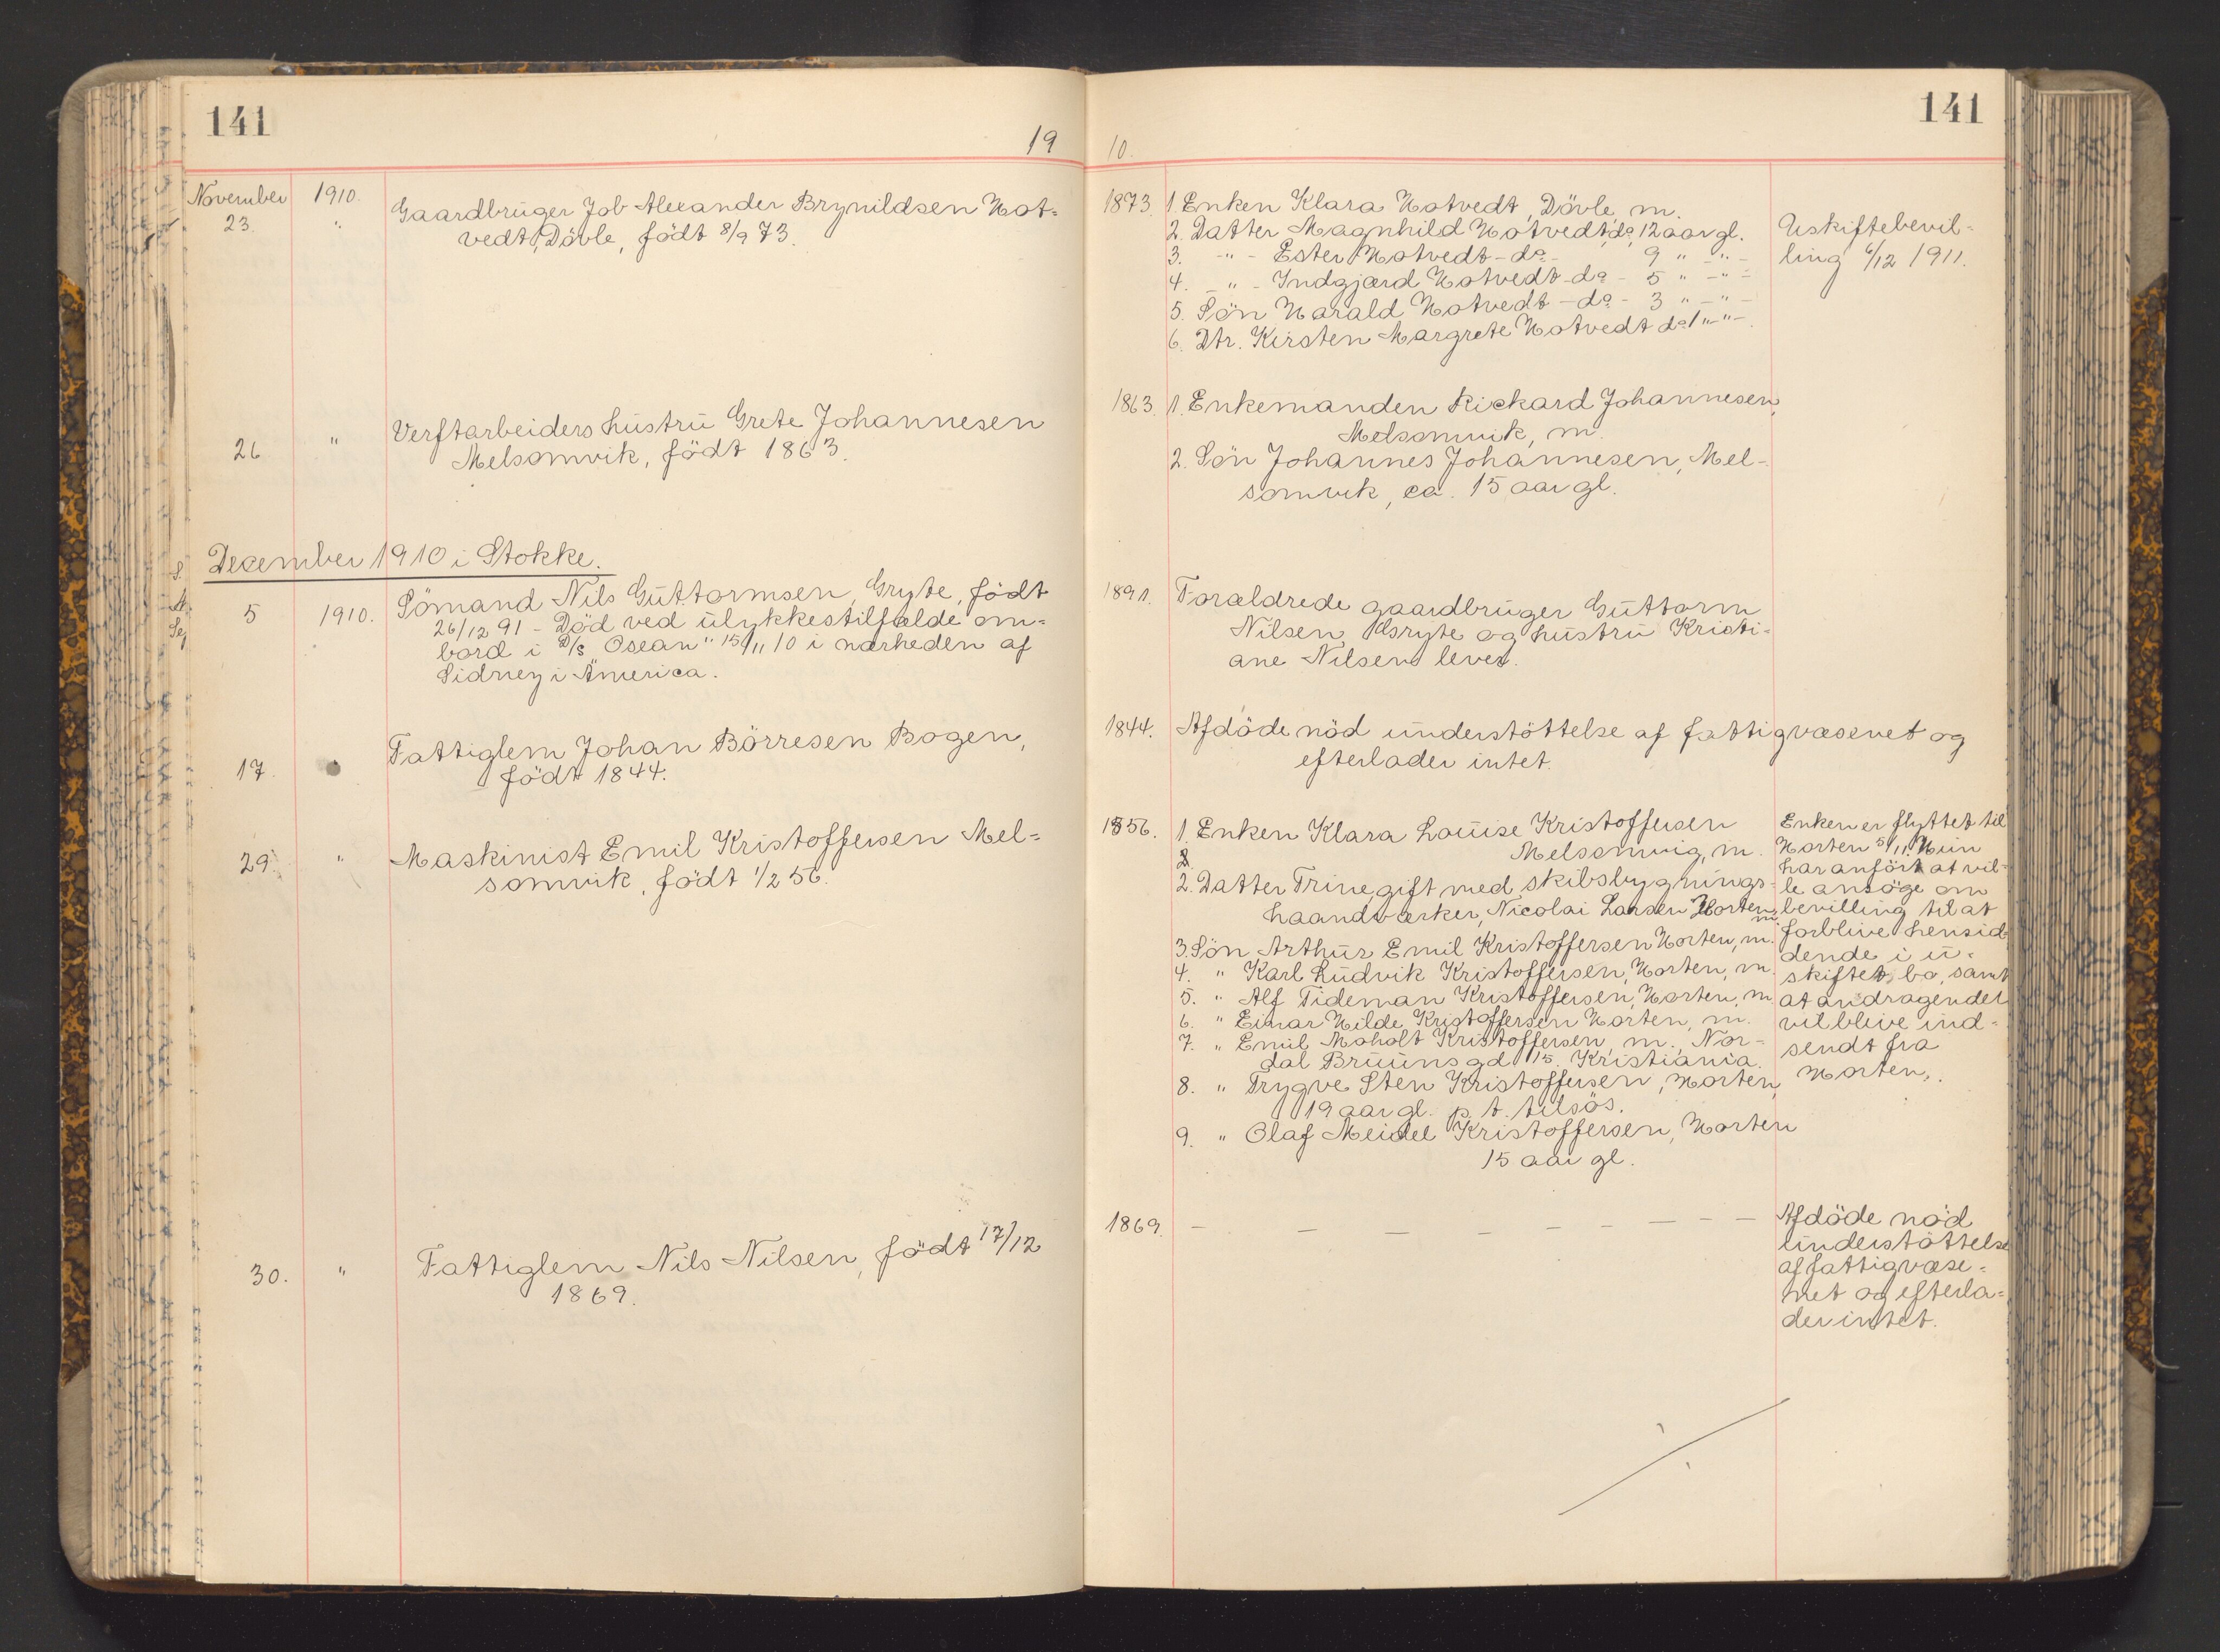 141
19
November 1910.
23. "
Gaardbruger Job Alexander Brynildsen Hot=
vedt, Dövle, födt 8/9 73.
26 "
Verftarbeiders hustru Grete Johannesen
Melsomvik, födt 1863.
December 1910 i Stokke.
5 1910.
Sömand Nils Guttormsen, Gryte, födt
26/12 91 - Död ved ulykkestilfælde om=
bord i D/S "Osean" 15/11 10 i nærheden af
Sidney i America.
17.
Fattiglem Johan Börresen Bogen,
födt 1844.
29. "
Maskinist Emil Kristoffersen Mel=
somvik, födt 1/2 56.
30. "
Fattiglem Nils Nilsen, födt 17/12
1869.
141
10.
1873. 1. Enken Klara Hotvedt, Dövle, m.
2. Datter Magnhild Hotvedt, do, 12 aar gl.
3. -"- Ester Hotvedt - do - 9 " -"-
4. -"- Indgjærd Hotvedt - do - 5 " -"-
5. Sön Harald Hotvedt - do - 3 " -"-
6. Dtr. Kirsten Margrete Hotvedt do 1 " -"-
Uskiftebevil-
ling 6/12 1911.
1863. 1. Enkemanden Rickard Johannesen,
Melsomvik, m.
2. Sön Johannes Johannesen, Mel-
somvik, ca. 15 aar gl.
1891. Forældrede gaardbruger Guttorm
Nilsen, Gryte og hustru Kristi=
ane Nilsen lever.
1844. Afdöde nöd understöttelse af fattigvæsenet og
efterlader intet.
1856. 1. Enken Klara Louise Kristoffersen
Melsomvig, m.
2. Datter Trine gift med skibsbygnings=
haandværker, Nicolai Larsen Horten,
m.
3. Sön Arthur Emil Kristoffersen Horten, m.
4. " Karl Ludvik Kristoffersen, Horten, m.
5. " Alf Tideman Kristoffersen, Horten, m.
6. " Einar Hilde Kristoffersen Horten, m.
7. " Emil Moholt Kristoffersen, m., Nor-
dal Bruuns gd 15. Kristiania.
8. " Trygve Sten Kristoffersen, Horten,
19 aar gl. p. t. tilsös.
9. " Olaf Meidel Kristoffersen, Horten
15 aar gl.
Enken er flyttet til
Horten 5/11. Hun
har anfört at vil-
le ansöge om
bevilling til at
forblive hensid-
dende i u=
skiftet bo, samt
at andragendet
vil blive ind=
sendt fra
Horten.
1869.
Afdöde nöd
understöttelse
af fattigvæse=
net og efterla=
der intet.